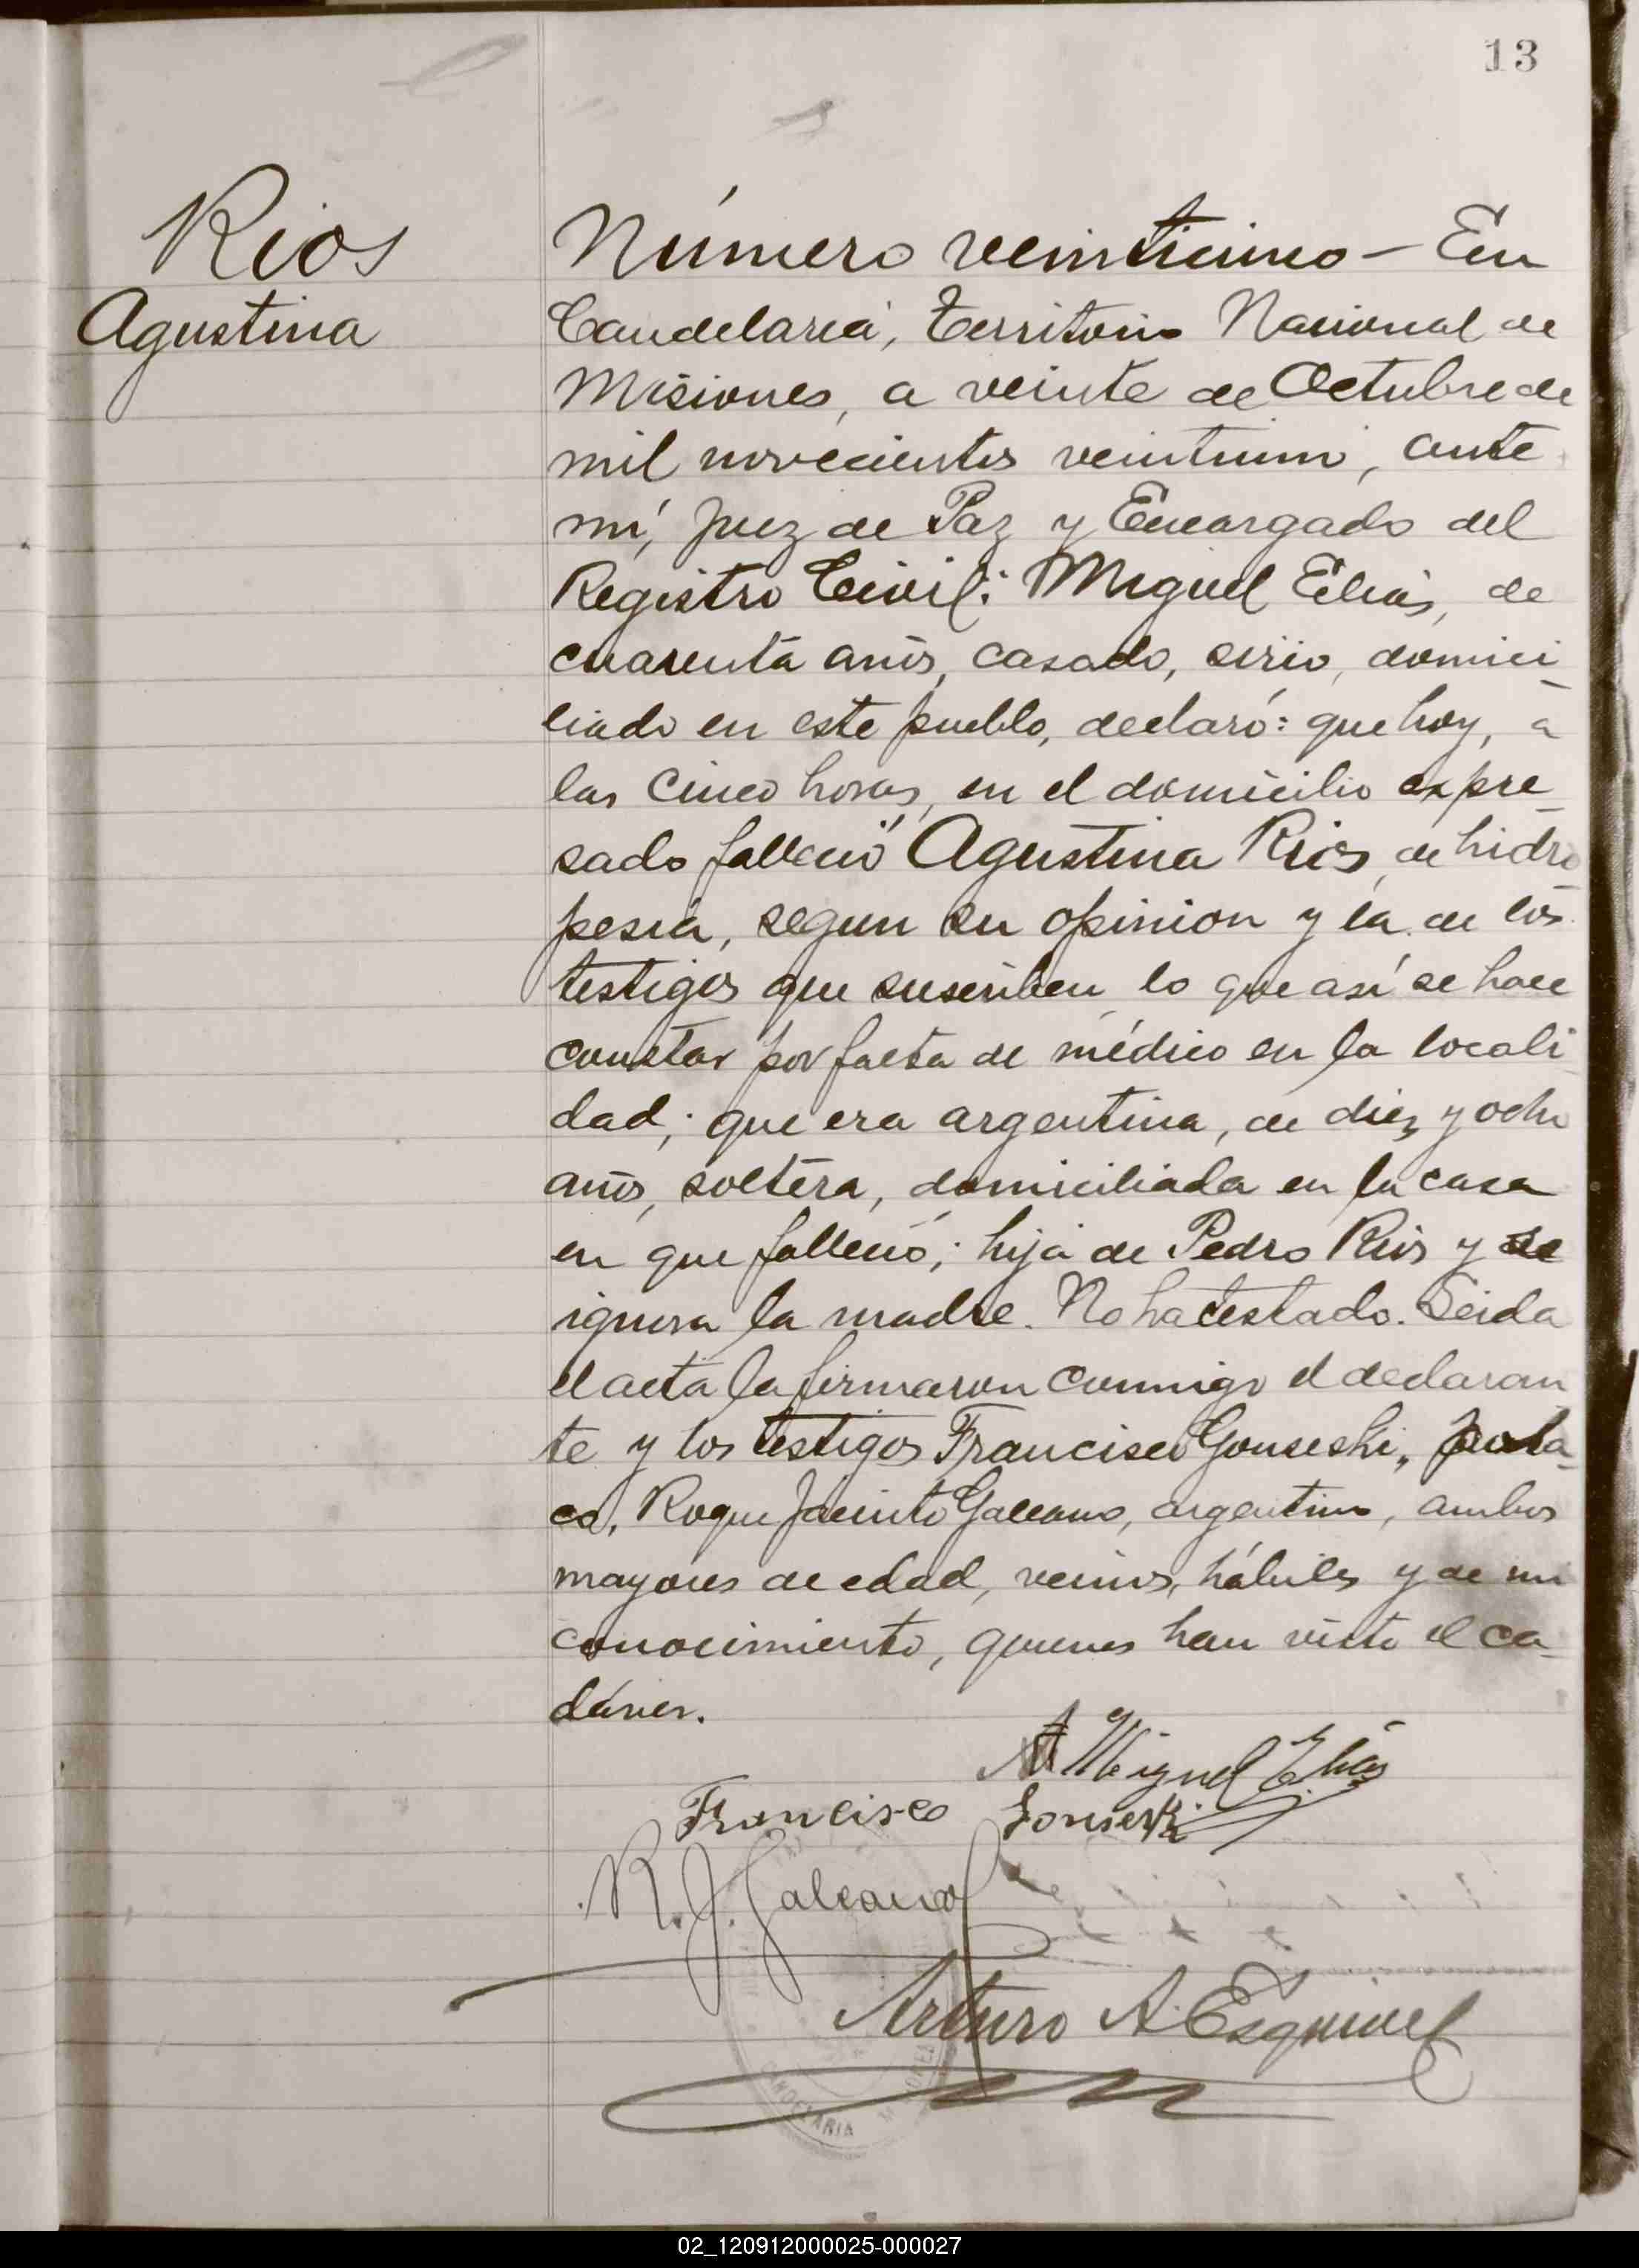 13
Rios
Agustina
Número veinticinco - En
Candelaria, territorio Nacional de
Misiones, a veinte de Octubre de
mil novecientos veintiuno, ante
mí, Juez de Paz y Encargado del
Registro Civil: Miguel Elias, de
cuarenta años, casado, sirio, domici
liado en este pueblo, declaró: que hoy, a
las cinco horas, en el domicilio expre
sado falleció Agustina Rios, de hidro
pesia, segun su opinion y la de los
testigos que suscriben, lo que así se hace
constar por falta de médico en la locali
dad; que era argentina, de diez y ocho
años, soltera, domiciliada en la casa
en que falleció; hija de Pedro Rios y se
ignora la madre. No ha testado. Leida
el acta la firmaron conmigo el declaran
te y los testigos Francisco Gouseski, pola-
co, Roque Jacinto Galeano, argentino, ambos
mayores de edad, vecinos, hábiles y de mi
conocimiento, quienes han visto el ca-
dáver.
Miguel Elias
Francisco Gonseski
R. J. Galeano
Arturo A. Esquivel
CANDELARIA
02_120912000025-000027